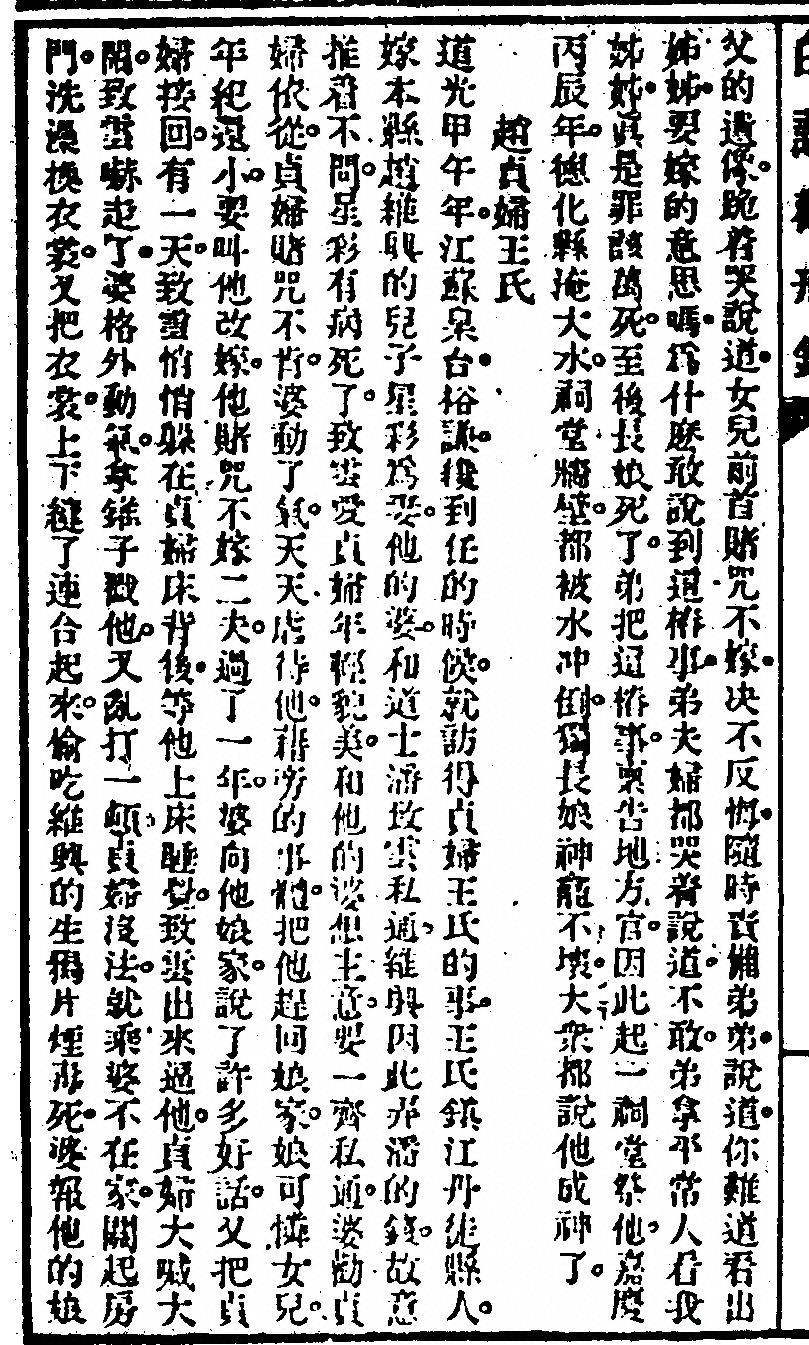 父的遺像。跪着哭說道。女兒前首賭咒不嫁。决不反悔。隨時責備弟弟。說道。你難道看出
姊姊。要嫁的意思嗎。爲什麽敢說到這樁事。弟夫婦都哭着說道。不敢。弟拿平常人看我
姊姊。眞是罪該萬死。至後長娘死了。弟把這樁事。禀告地方官。因此起一祠堂祭他。嘉慶
丙辰年。德化縣淹大水。祠堂牆壁。都被水冲倒。獨長娘神龕不壞。大衆都說他成神了。
趙貞婦王氏
道光甲午年。江蘇臬台。裕謙。後到任的時候。就訪得貞婦王氏的事。王氏鎮江丹徒縣人。
嫁本縣趙維興的兒子星彩爲妻。他的婆。和道士潘致雲私通。維興因此弄潘的錢。故意
推着不問。星彩有病死了。致雲愛貞婦年輕貌美。和他的婆想主意。要一齊私通。婆勸貞
婦依從。貞婦賭咒不肯。婆動了氣。天天虐待他。藉旁的事體。把他趕回娘家。娘可憐女兒。
年紀還小。要叫他改嫁。他賭咒不嫁二夫。過了一年。婆向他娘家。說了許多好話。又把貞
婦接回。有一天。致雲悄悄躲在貞婦床背後。等他上床睡覺。致雲出來逼他。貞婦大喊大
鬧。致雲嚇走了。婆格外動氣。拿錐子戳他。又亂打一頓。貞婦沒法。就乘婆不在家。關起房
門。洗澡換衣裳。又把衣裳。上下縫了連台起來。偷吃維興的生鴉片煙弄死。婆報他的娘